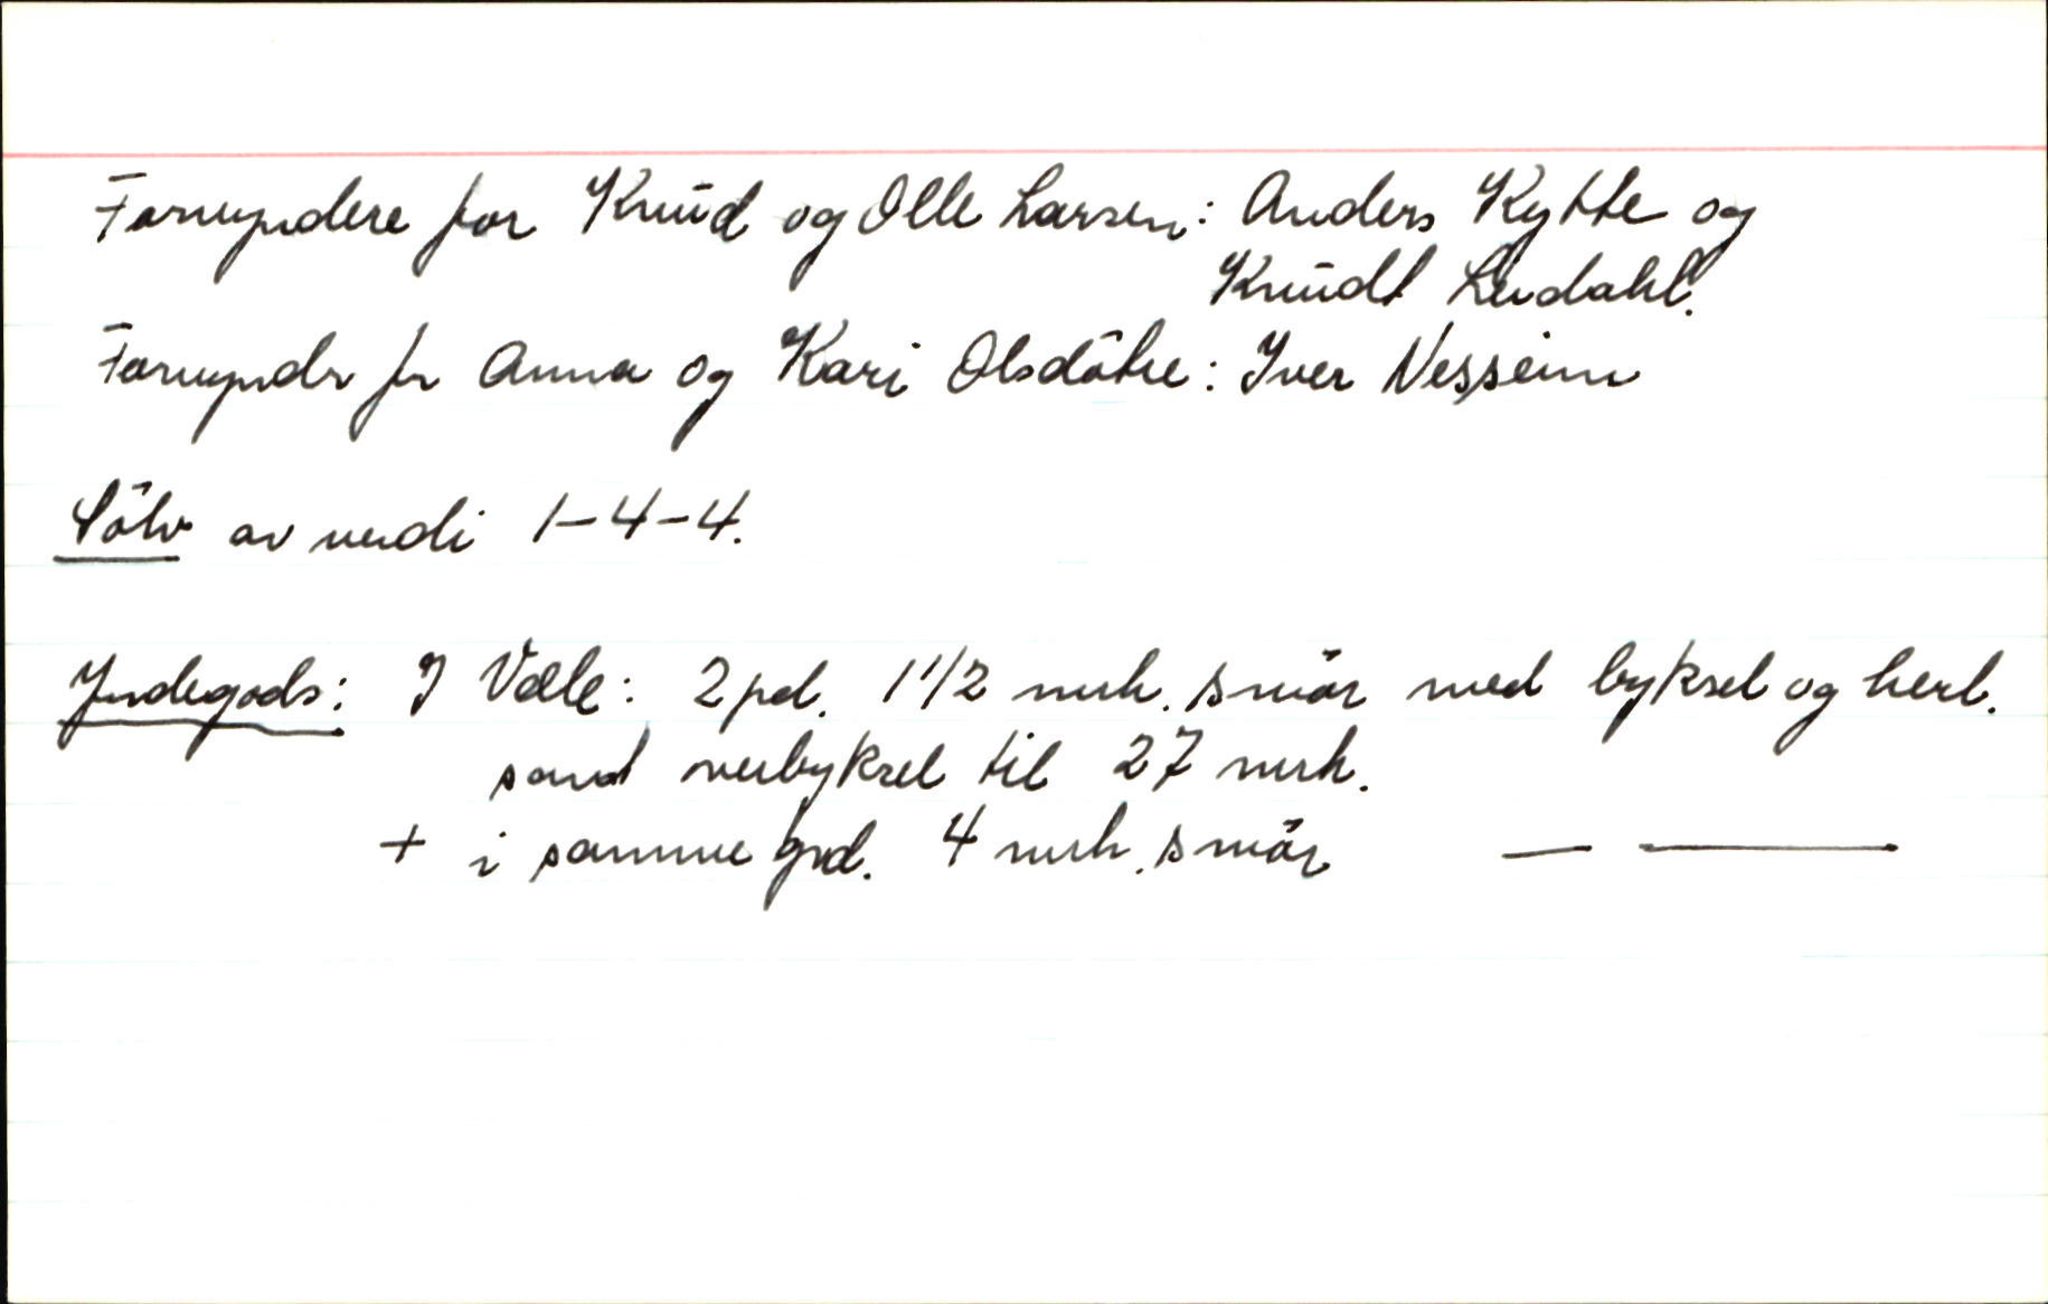 Formyndere for Knud og Olle Larsen: Anders Kytte og
Knudt Lirdahl.
Formyndr fr Anna og Kari Olsdötre: Iver Nesseim
Sölv av verdi 1-4-4.
Jordegods: I Væle: 2 pd. 1 1/2 mrk. smör med byksel og herl.
samt overbyksel til 27 mrk.
+ i samme grd. 4 mrk. smör — —